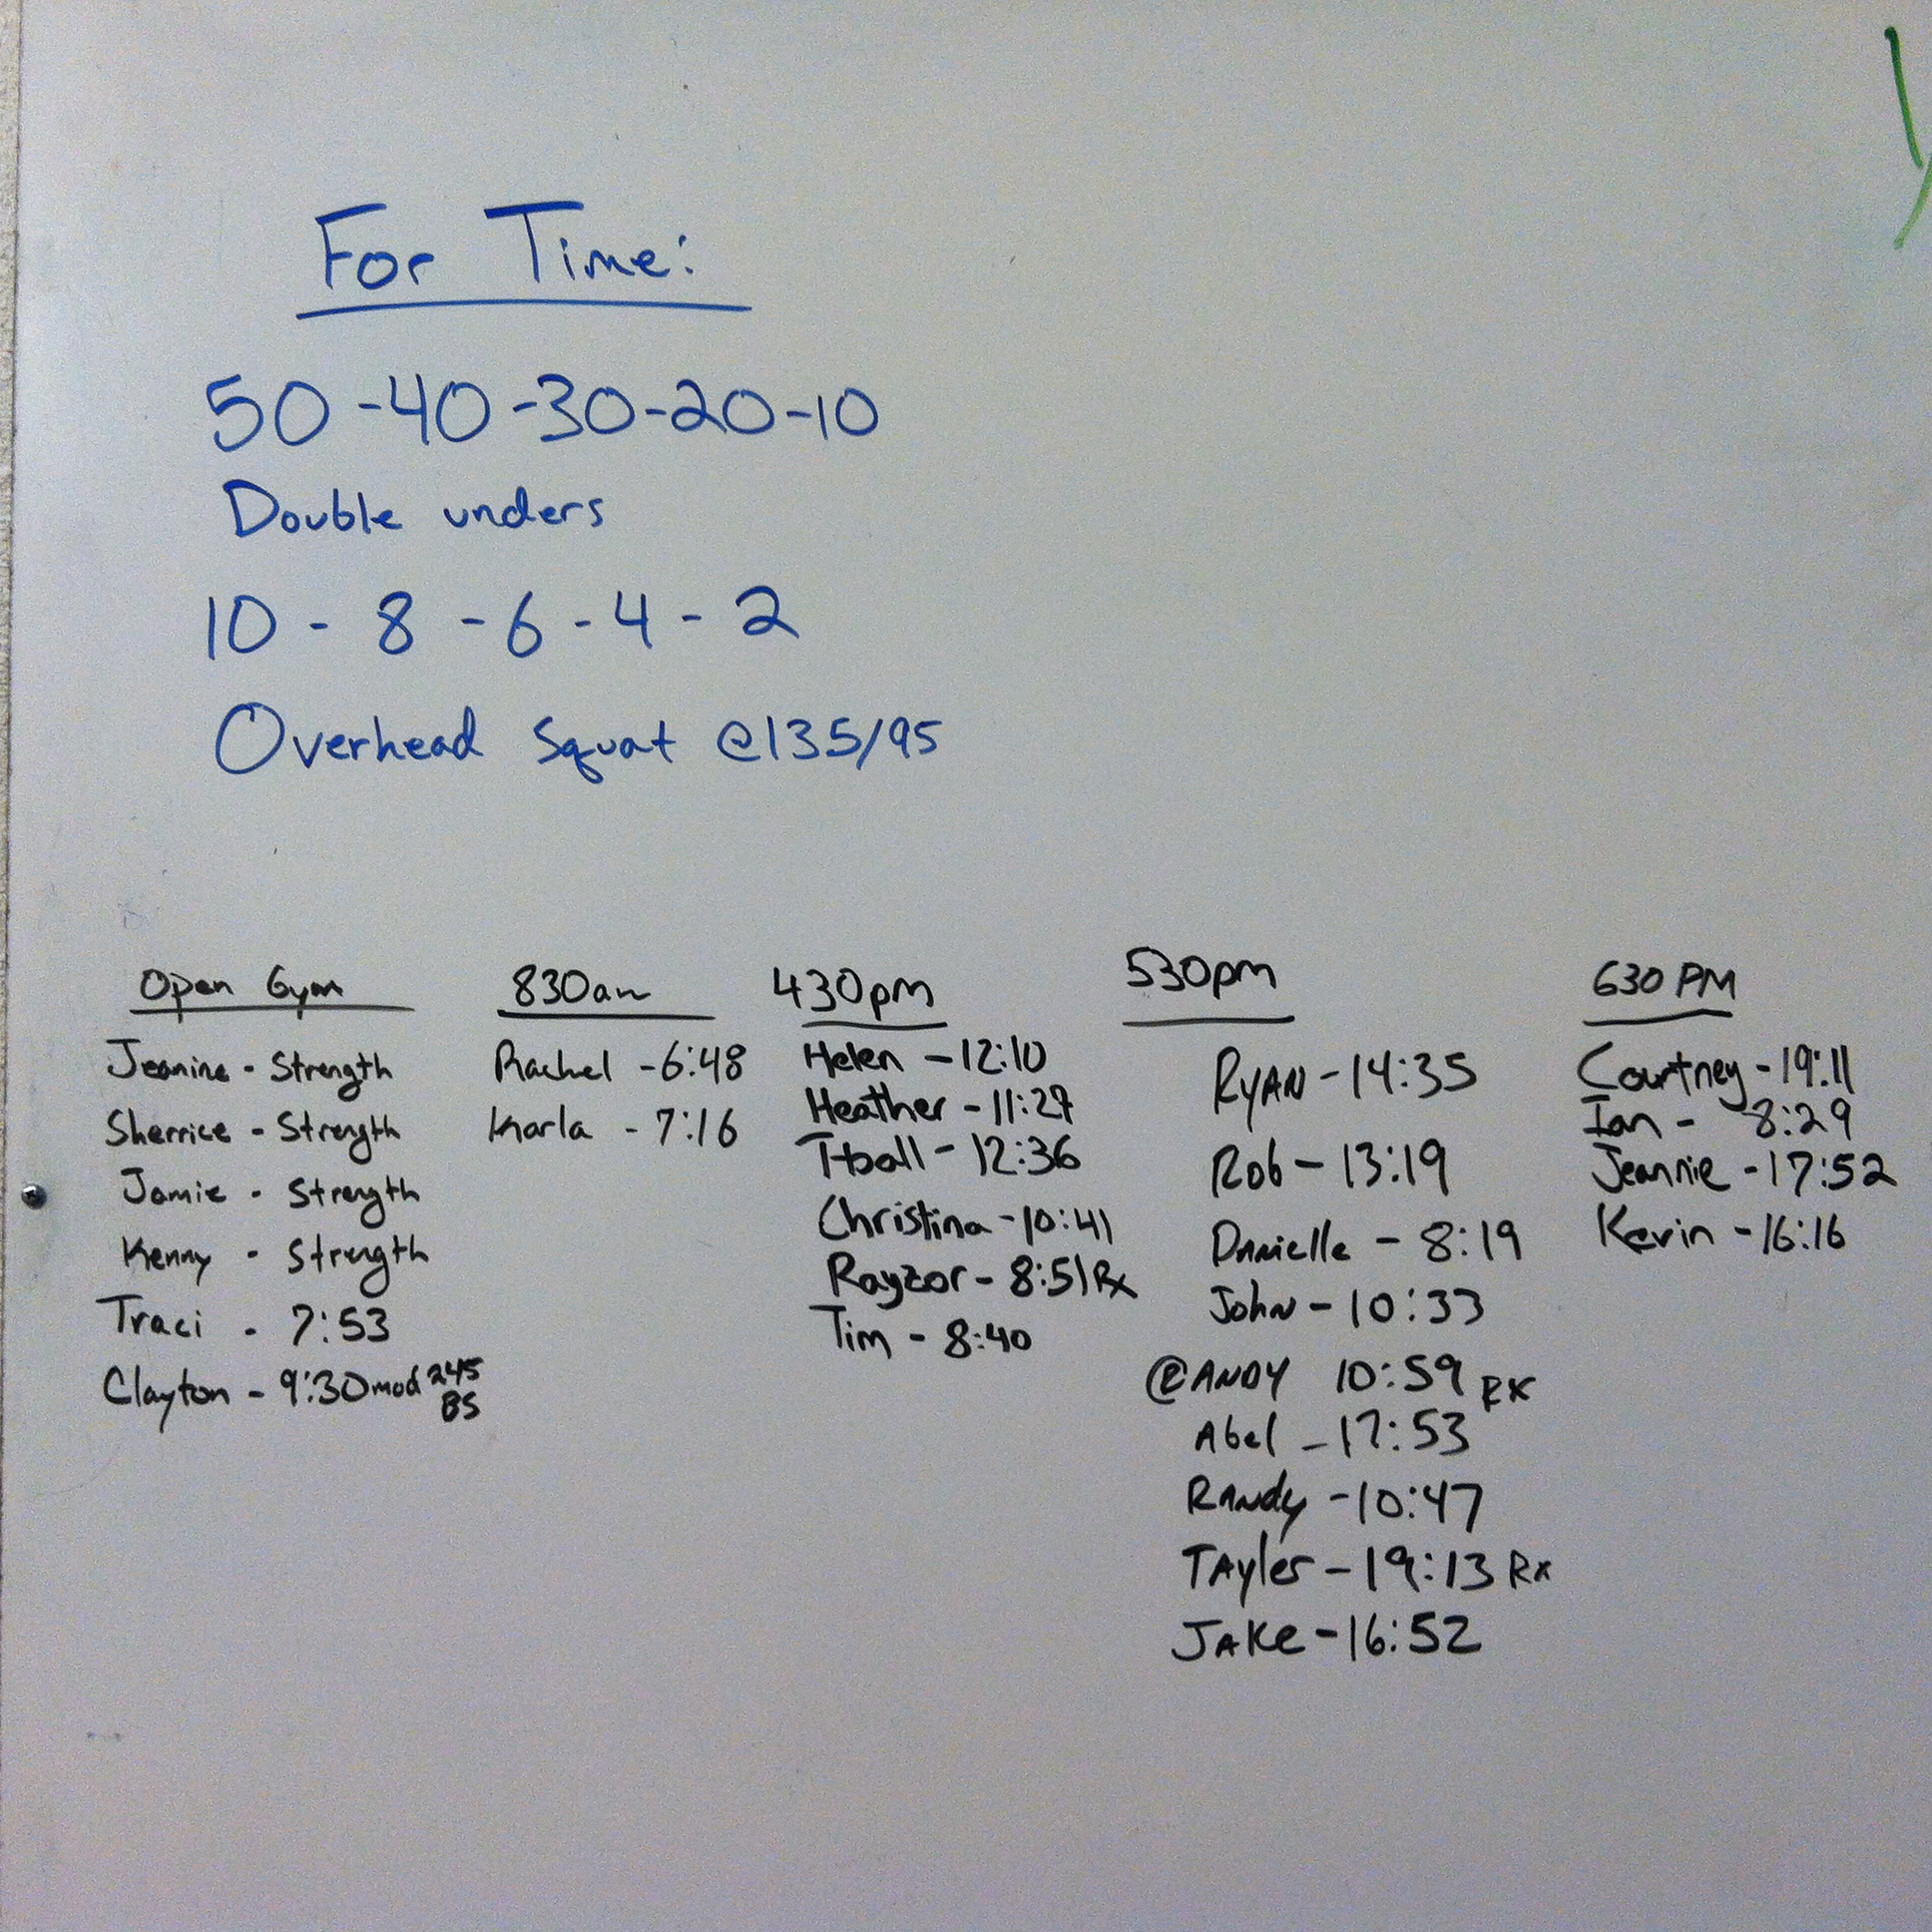 For Time:
50-40-30-20-10
Double unders
10 - 8 - 6 - 4 - 2
Overhead Squat @135/95
Open Gym
Jeanine - Strength
Sherrice - Strength
Jamie - Strength
Kenny - Strength
Traci - 7:53
Clayton - 9:30 mod 245
BS
830am
Rachel - 6:48
Karla - 7:16
430pm
Helen - 12:10
Heather - 11:27
T-ball - 12:36
Christina - 10:41
Rayzor - 8:51 Rx
Tim - 8:40
530pm
RYAN - 14:35
Rob - 13:19
Danielle - 8:19
John - 10:33
@ANDY 10:59 RX
Abel - 17:53
Randy - 10:47
TAyler - 19:13 Rx
JAKe - 16:52
630 PM
Courtney - 19:11
Ian - 8:29
Jeannie - 17:52
Kevin - 16:16